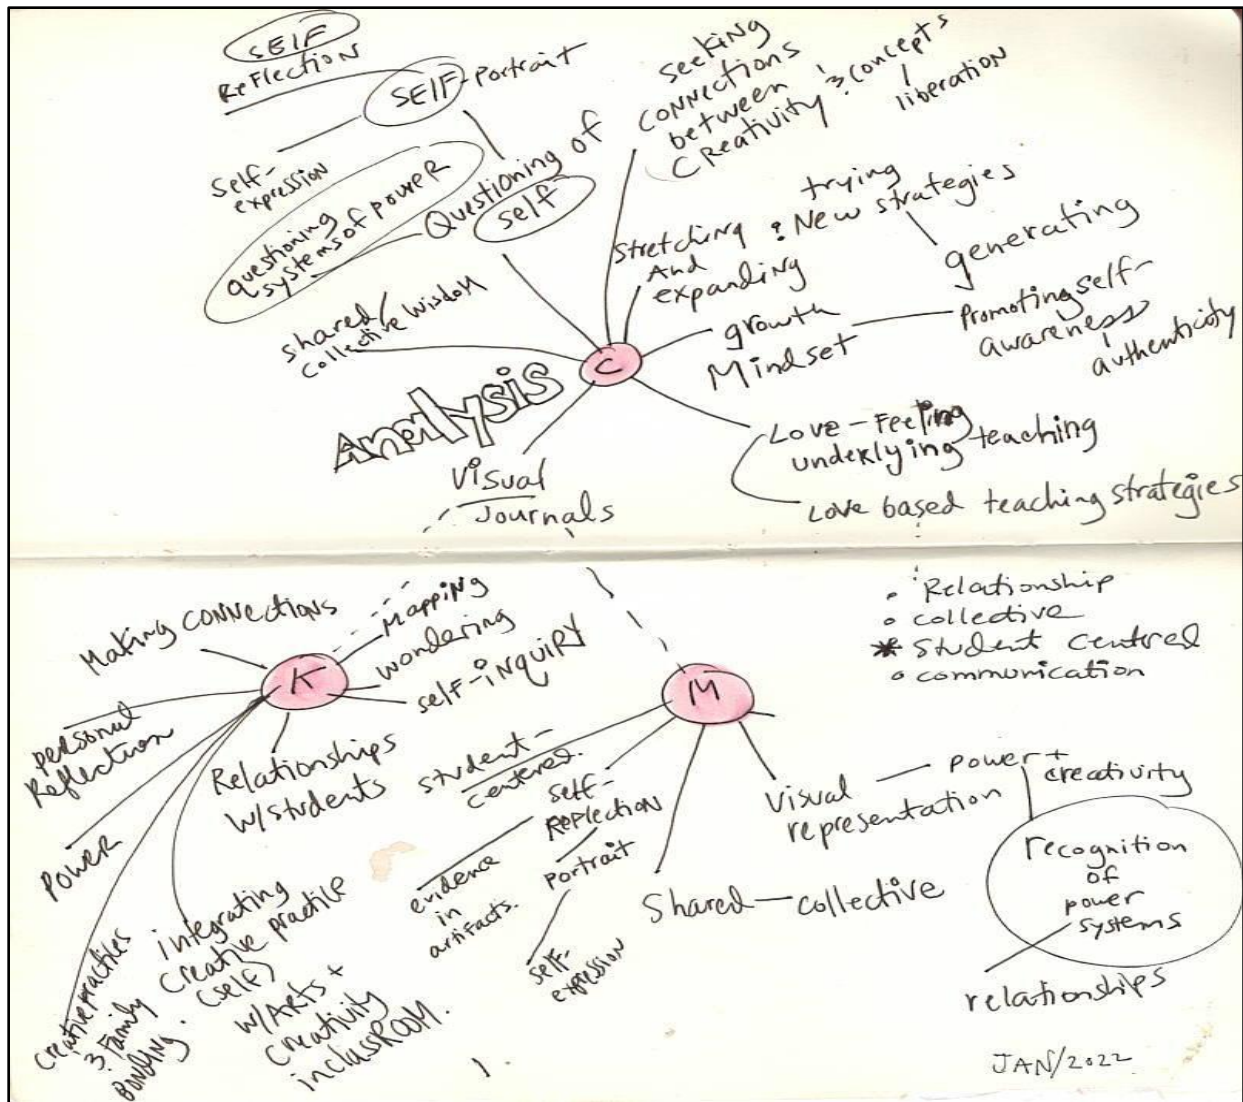 SElF
ReFlection
SElF-Portrait
Self-
expression
questioning
systems of power
Questioning of
self
shared/
collective Wisdom
seeking
connections
between
Creativity & concepts
liberation
Stretching &
And
expanding
trying
New strategies
generating
growth
Mindset
Promoting self-
awareness
authenticity
Analysis
C
Love - Feeling
underlying teaching
Love based teaching strategies
Visual
Journals
Making connections
Mapping
wondering
self-inquiry
K
personal
Reflection
Power
Relationships
w/students
creative practices
& Family
Bonding.
integrating
creative practice
(self)
w/Arts +
creativity
in classRoom.
M
student-
centered.
self-
Reflection
portrait
evidence
in
artifacts.
self-
expression
Shared - collective
Visual
representation
power +
creativity
recognition
of
power
systems
relationships
• Relationship
• collective
* Student centered
• communication
JAN/2022